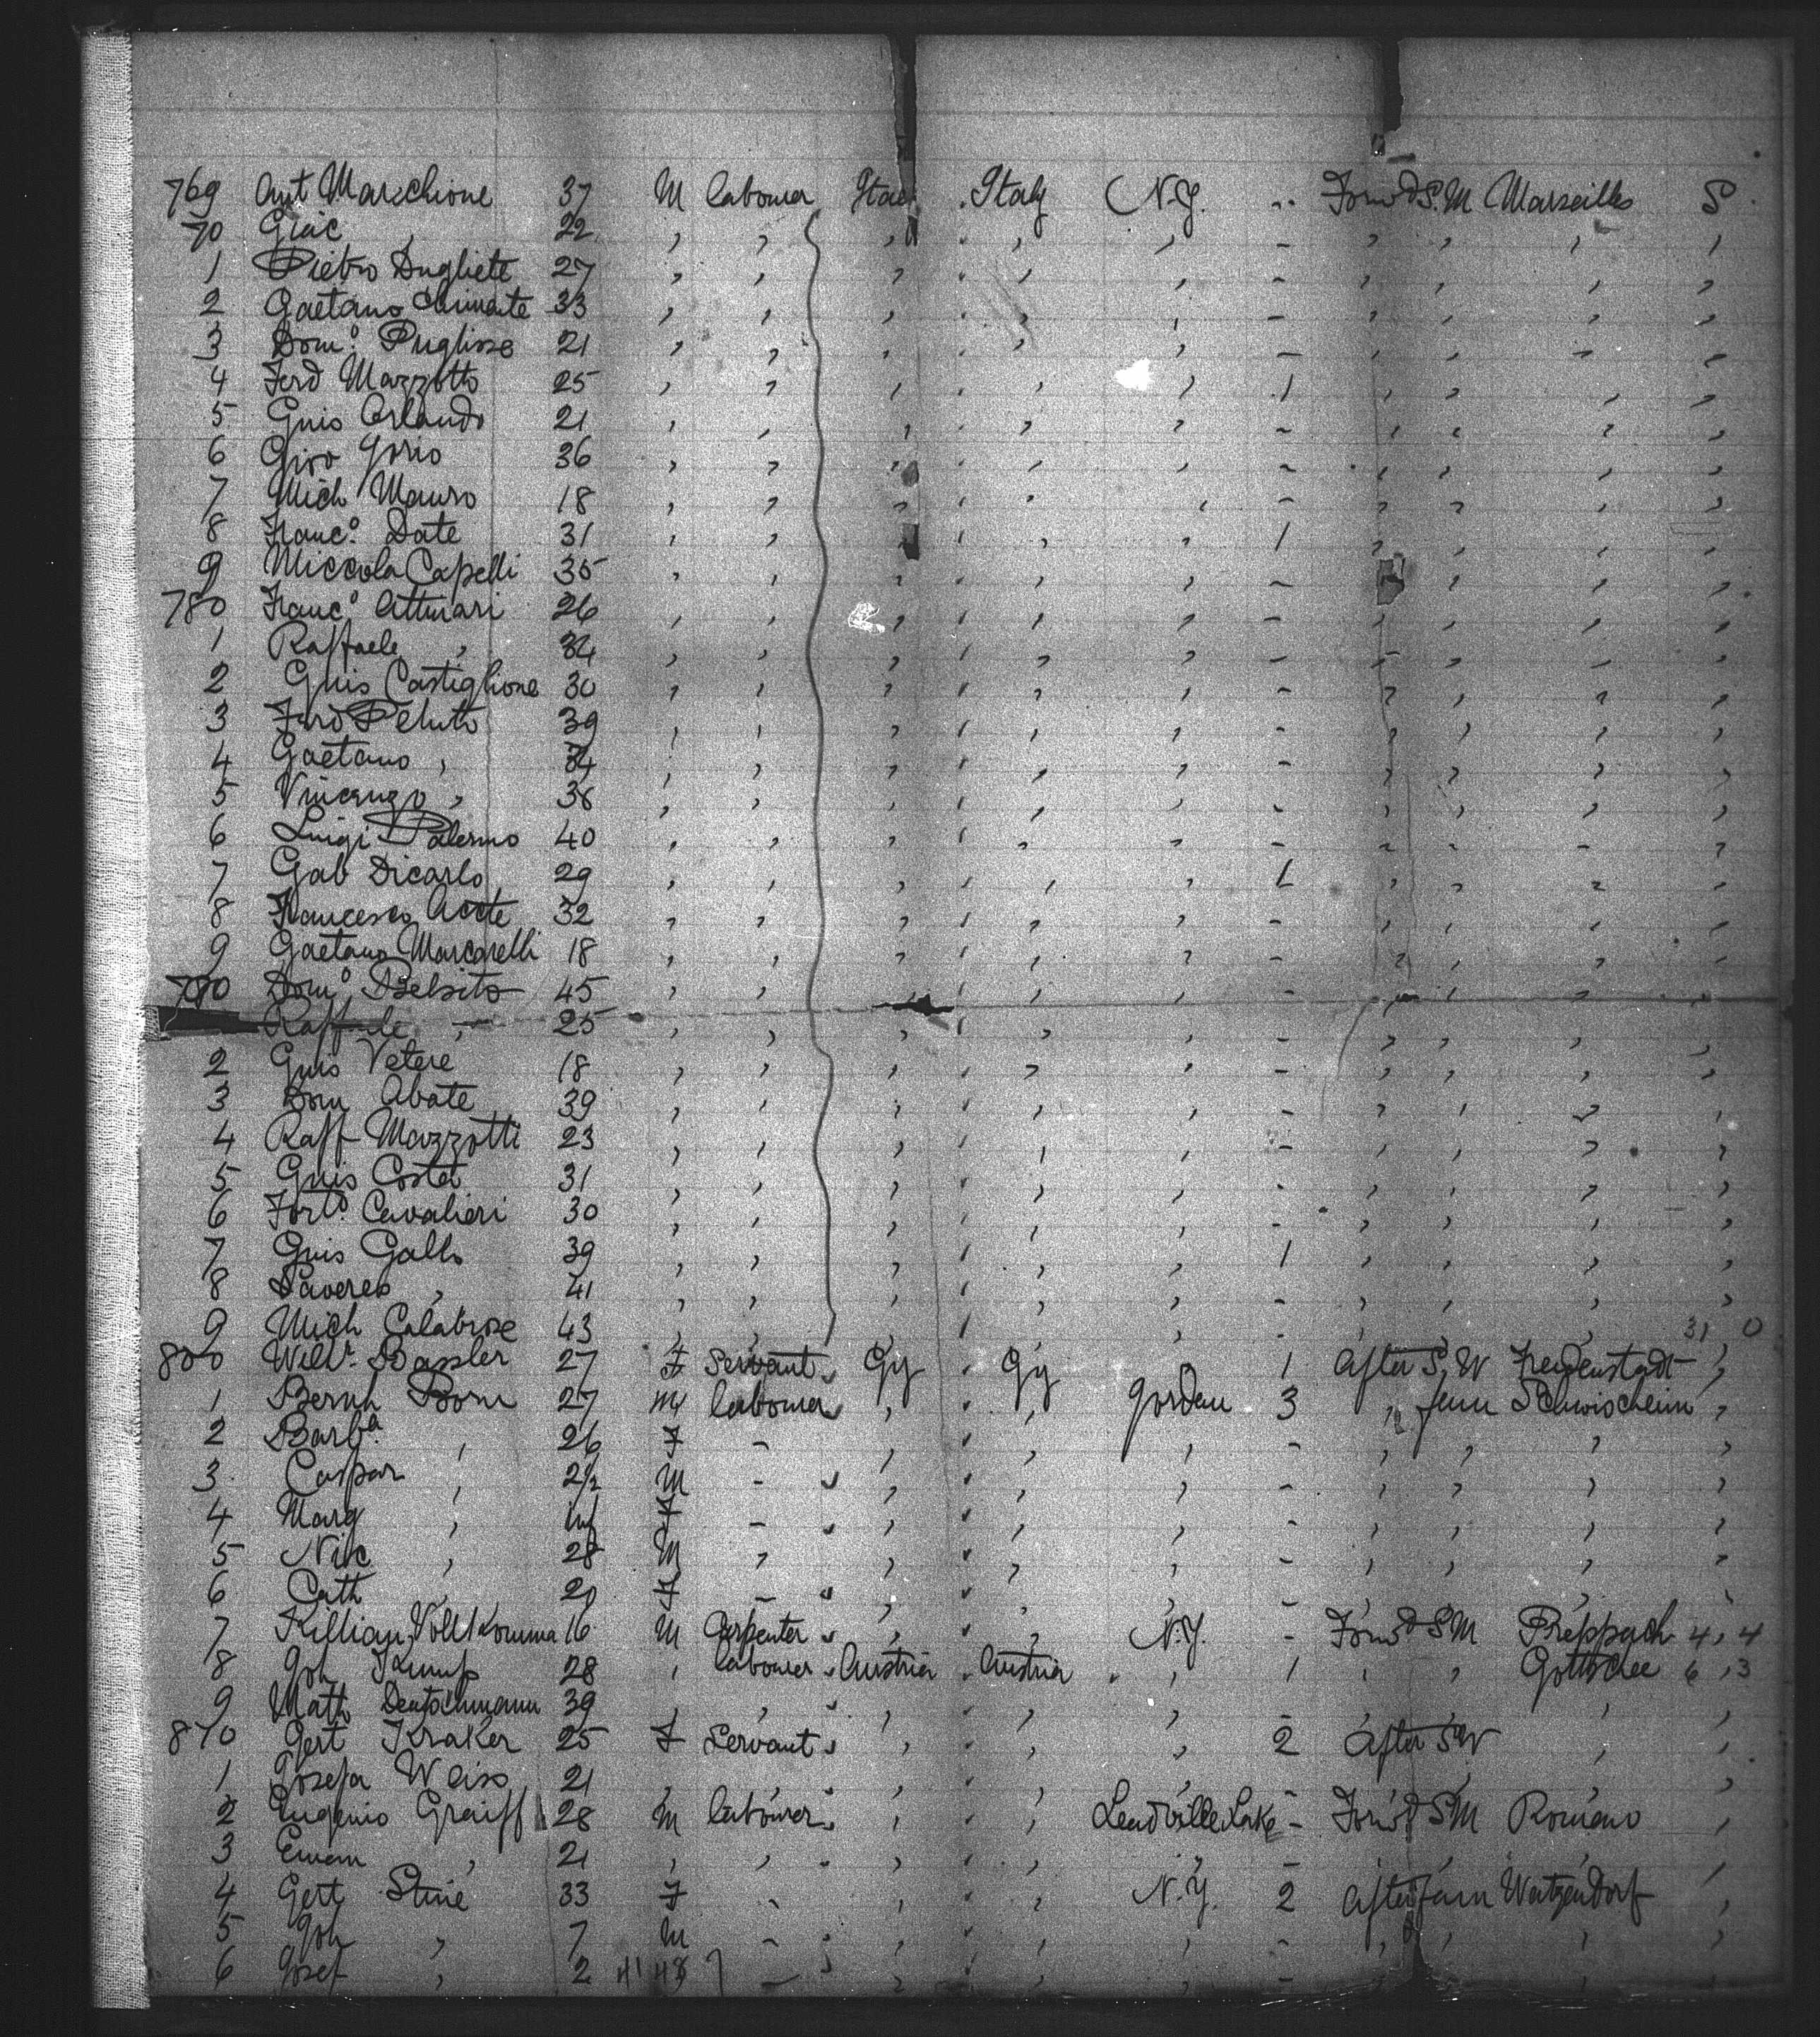 769 Ant Marchione 37 M labourer Italy Italy N.Y. - Forwd S.M Marseilles S
70 Giac , 22 , , , , , - , , , ,
1 Pietro 27 , , , , , - , , , ,
2 Gaetano 33 , , , , , - , , , ,
3 Domo. Pugliese 21 , , , , , - , , , ,
4 Ferd Mazzotto 25 , , , , , 1 , , , ,
5 Guis Orlando 21 , , , , , - , , , ,
6 Giov Gorio 36 , , , , , - , , , ,
7 Mich Mauro 18 , , , , , - , , , ,
8 Franco. Date 31 , , , , , 1 , , , ,
9 Miccola Capelli 35 , , , , , - , , , ,
780 Franco 26 , , , , , - , , , ,
1 Raffaele , 34 , , , , , - , , , ,
2 Guis Castiglione 30 , , , , , - , , , ,
3 Ferd Peluto 39 , , , , , - , , , ,
4 Gaetano , 34 , , , , , - , , , ,
5 Vincenzo , 38 , , , , , - , , , ,
6 Luigi Palermo 40 , , , , , - , , , ,
7 Gab Dicarlo 29 , , , , , 1 , , , ,
8 Francesco 32 , , , , , - , , , ,
9 Gaetano Marcarelli 18 , , , , , - , , , ,
790 Domo Belsito 45 , , , , , - , , , ,
Raffaele , 25 , , , , , - , , , ,
2 Guis Vetere 18 , , , , , - , , , ,
3 Dom Abate 39 , , , , , - , , , ,
4 Raff Mazzotti 23 , , , , , - , , , ,
5 Guis Costa 31 , , , , , - , , , ,
6 Forto. Cavalieri 30 , , , , , - , , , ,
7 Guis Gallo 39 , , , , , 1 , , , ,
8 Saverio , 41 , , , , , - , , , ,
9 Mich Calabrese 43 , , , , , - , , , 31 0
800 Wilhr. Bassler 27 F Servant Gy Gy , 1 After S.W Freudenstadt ,
1 Bernh Born 27 M labourer , , Jordan 3 , fam Schwischeim ,
2 Barba , 26 F - , , , - , , , ,
3 Caspar , 2½ M - , , , - , , , ,
4 Marg , inf F - , , , - , , , ,
5 Nik , 28 M , , , , - , , , ,
6 Cath , 20 F - , , , - , , , ,
7 Killian Vollkomma 16 M Carpenter , , N.Y. - Forwd S M Preppach 4, 4
8 Joh Kump 28 , labourer Austria Austria , 1 , , Gottschee 6, 3
9 Math Deutschmann 39 , , , , , - , , , ,
810 Gert Kraker 25 F Servant , , , 2 After S W , ,
1 Josefa Weiss 21 , , , , , - , , , ,
2 Eugenio Graiff 28 M labourer , , Leadville Lake - Forwd S M Romeno ,
3 Eman , 21 , , , , , - , , , ,
4 Gert Stine 33 F - , , N.Y. 2 After fam Watzendorf ,
5 Joh , 7 M - , , , - , , , ,
6 Josef , 2 41 48 , - , , , - , , , ,